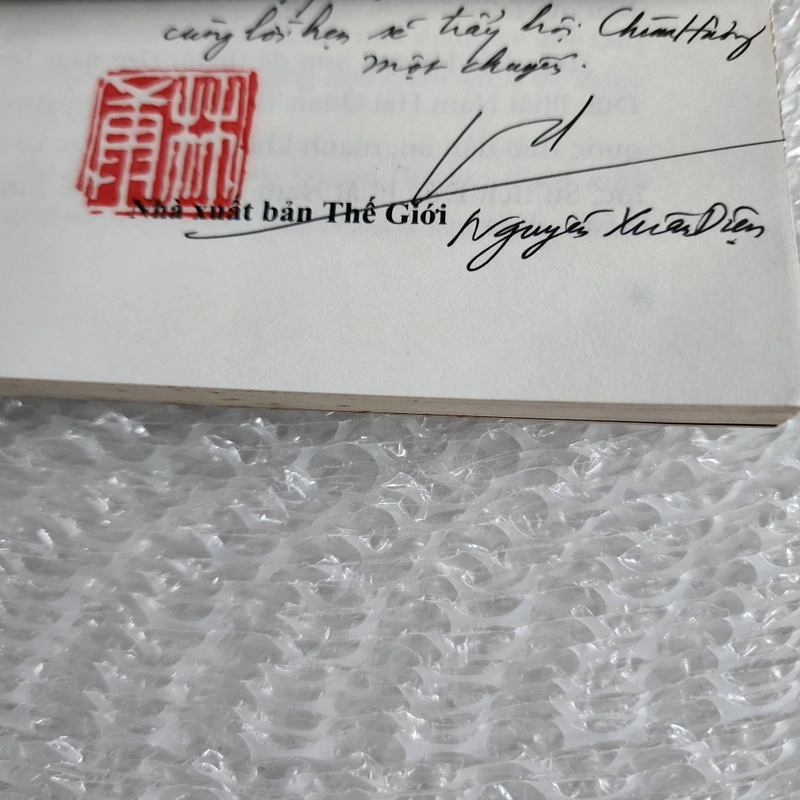 cùng lời hẹn sẽ trẩy hội Chùa Hương
một chuyến.
Nhà xuất bản Thế Giới
Nguyễn Xuân Diện